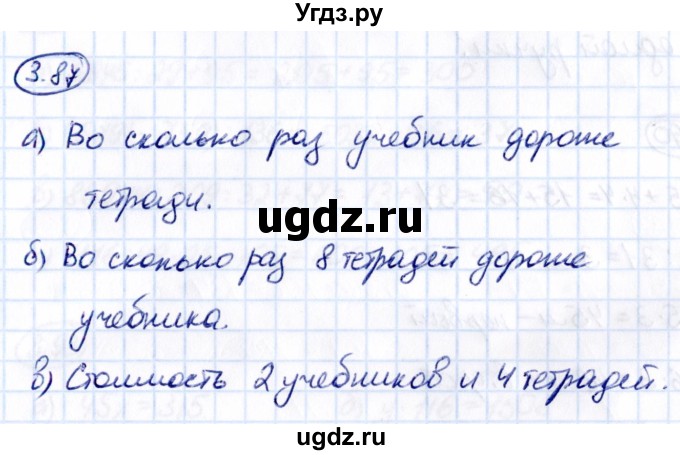 Угдз.ру
3.87
а) Во сколько раз учебник дороже
тетради.
ugdz.ru
б) Во сколько раз 8 тетрадей дороже
учебника.
в) Стоимость 2 учебников и 4 тетрадей.
ugdz.ru